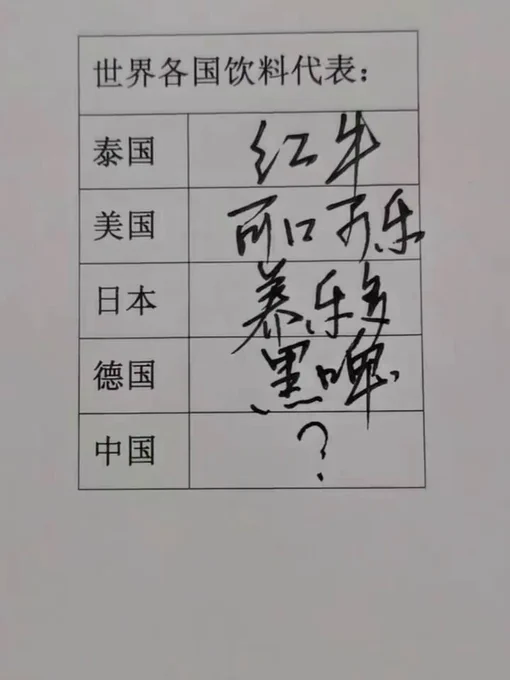 世界各国饮料代表：
泰国 红牛
美国 可口可乐
日本 养乐多
德国 黑啤
中国 ?